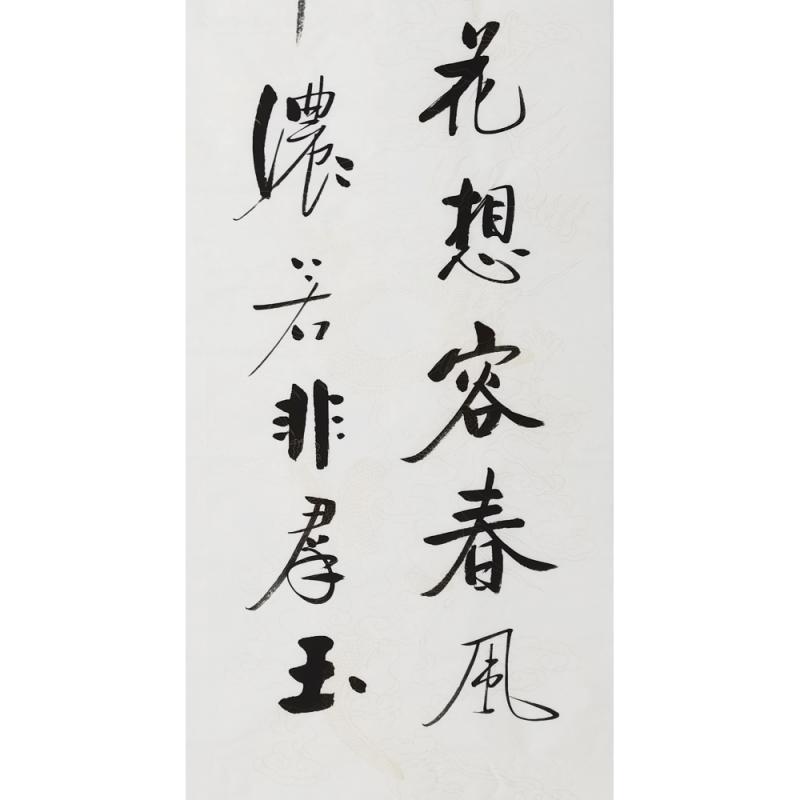 花想容春風
濃若非羣玉